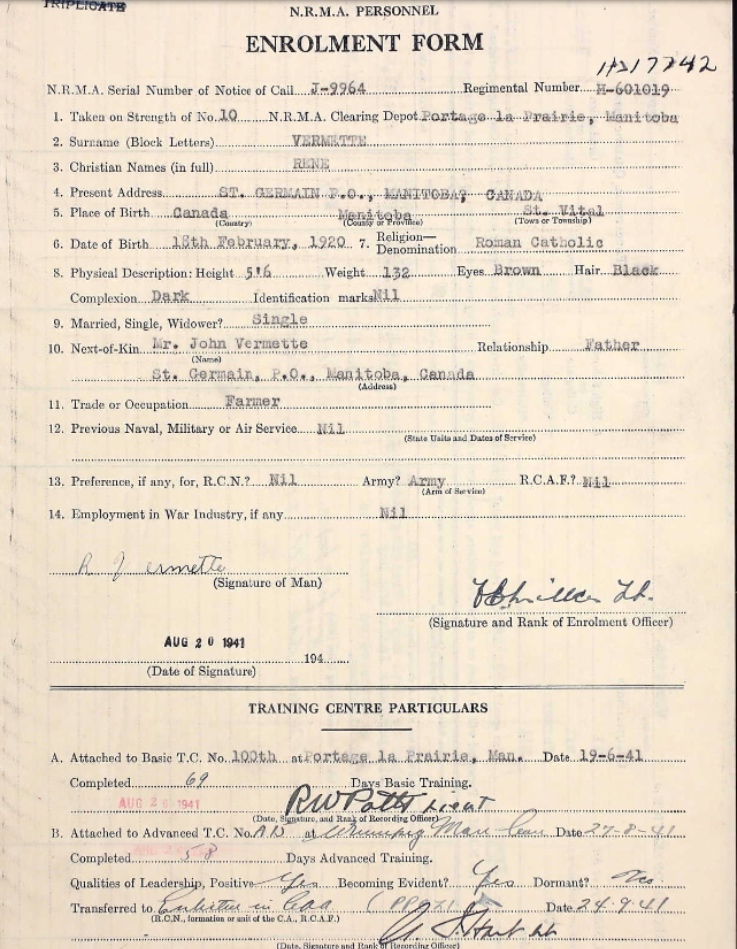 TRIPLICATE
N.R.M.A. PERSONNEL
ENROLMENT FORM
N.R.M.A. Serial Number of Notice of Call J-9964 Regimental Number M-601019
1. Taken on Strength of No. 10 N.R.M.A. Clearing Depot Portage la Prairie, Manitoba
2. Surname (Block Letters) VERMETTE
3. Christian Names (in full) RENE
4. Present Address ST. GERMAIN P.O., MANITOBA, CANADA
5. Place of Birth Canada Manitoba St. Vital
(Country) (County or Province) (Town or Township)
6. Date of Birth 18th February, 1920 7. Religion—Denomination Roman Catholic
8. Physical Description: Height 5'6 Weight 132 Eyes Brown Hair Black
Complexion Dark Identification marks Nil
9. Married, Single, Widower? Single
10. Next-of-Kin Mr. John Vermette Relationship Father
(Name)
St. Germain, P.O., Manitoba, Canada
(Address)
11. Trade or Occupation Farmer
12. Previous Naval, Military or Air Service Nil
(State Units and Dates of Service)
13. Preference, if any, for, R.C.N.? Nil Army? Army R.C.A.F.? Nil
(Arm of Service)
14. Employment in War Industry, if any Nil
R Vermette
(Signature of Man)
(Signature and Rank of Enrolment Officer)
AUG 20 1941
194
(Date of Signature)
TRAINING CENTRE PARTICULARS
A. Attached to Basic T.C. No. 100th at Portage la Prairie, Man. Date 19-6-41
Completed 69 Days Basic Training.
AUG 26 1941 RW Potts Lieut
(Date, Signature, and Rank of Recording Officer)
B. Attached to Advanced T.C. No. at Winnipeg Man Date 27-8-41
Completed 58 Days Advanced Training.
Qualities of Leadership, Positive Yes Becoming Evident? Yes Dormant? No
Transferred to Date 24.9.41
(R.C.N., formation or unit of the C.A., R.C.A.F.)
(Date, Signature and Rank of Recording Officer)